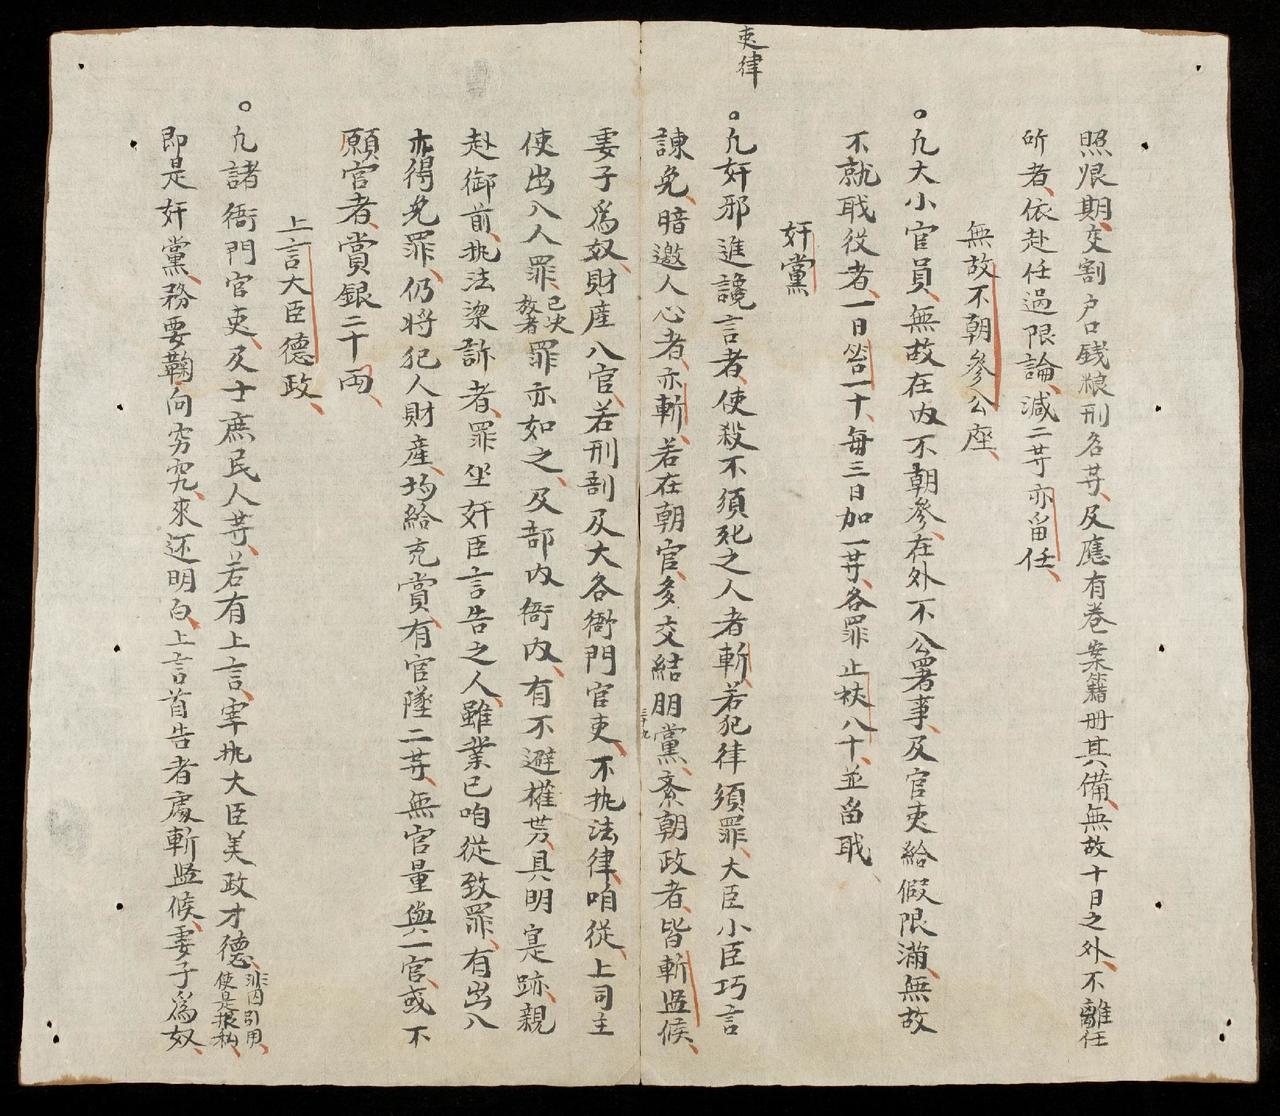 吏律
照限期、交割户口錢粮刑名䓁、及應有卷案籍册其備、無故十日之外、不離任
所者、依赴任過限論、减二䓁、亦畄任、
無故不朝參公座、
○凢大小官員、無故在内不朝參、在外不公署事、及官吏給假限滿、無故
不就職役者、一日笞一十、每三日加一䓁、各罪止杖八十、並畄職
奸黨
○凢奸邪進讒言者、使殺不須死之人者斬、若犯律須罪、大臣小臣巧言
諌免、暗邀人心者、亦斬、若在朝官、多交結朋黨、紊朝政者、皆斬监候、
妻子爲奴、財産入官、若刑部及大各衙門官吏、不执法律、咱從、上司主
使出入人罪、已决放者罪亦如之、及部内衙内、有不避權势、具明寔跡、親
赴御前、执法梁訴者、罪坐奸臣、言告之人、雖業已咱從致罪、有出入
亦得免罪、仍将犯人財産、均給充賞、有官陞二䓁、無官量與一官、或不
願官者、賞銀二十両、
上言大臣德政、
○凢諸衙門官吏、及士庶民人䓁、若有上言、宰执大臣美政才德、非因引用、便是报私、
即是奸黨、務要鞫向穷究、來还明白、上言首告者處斬监候、妻子爲奴、